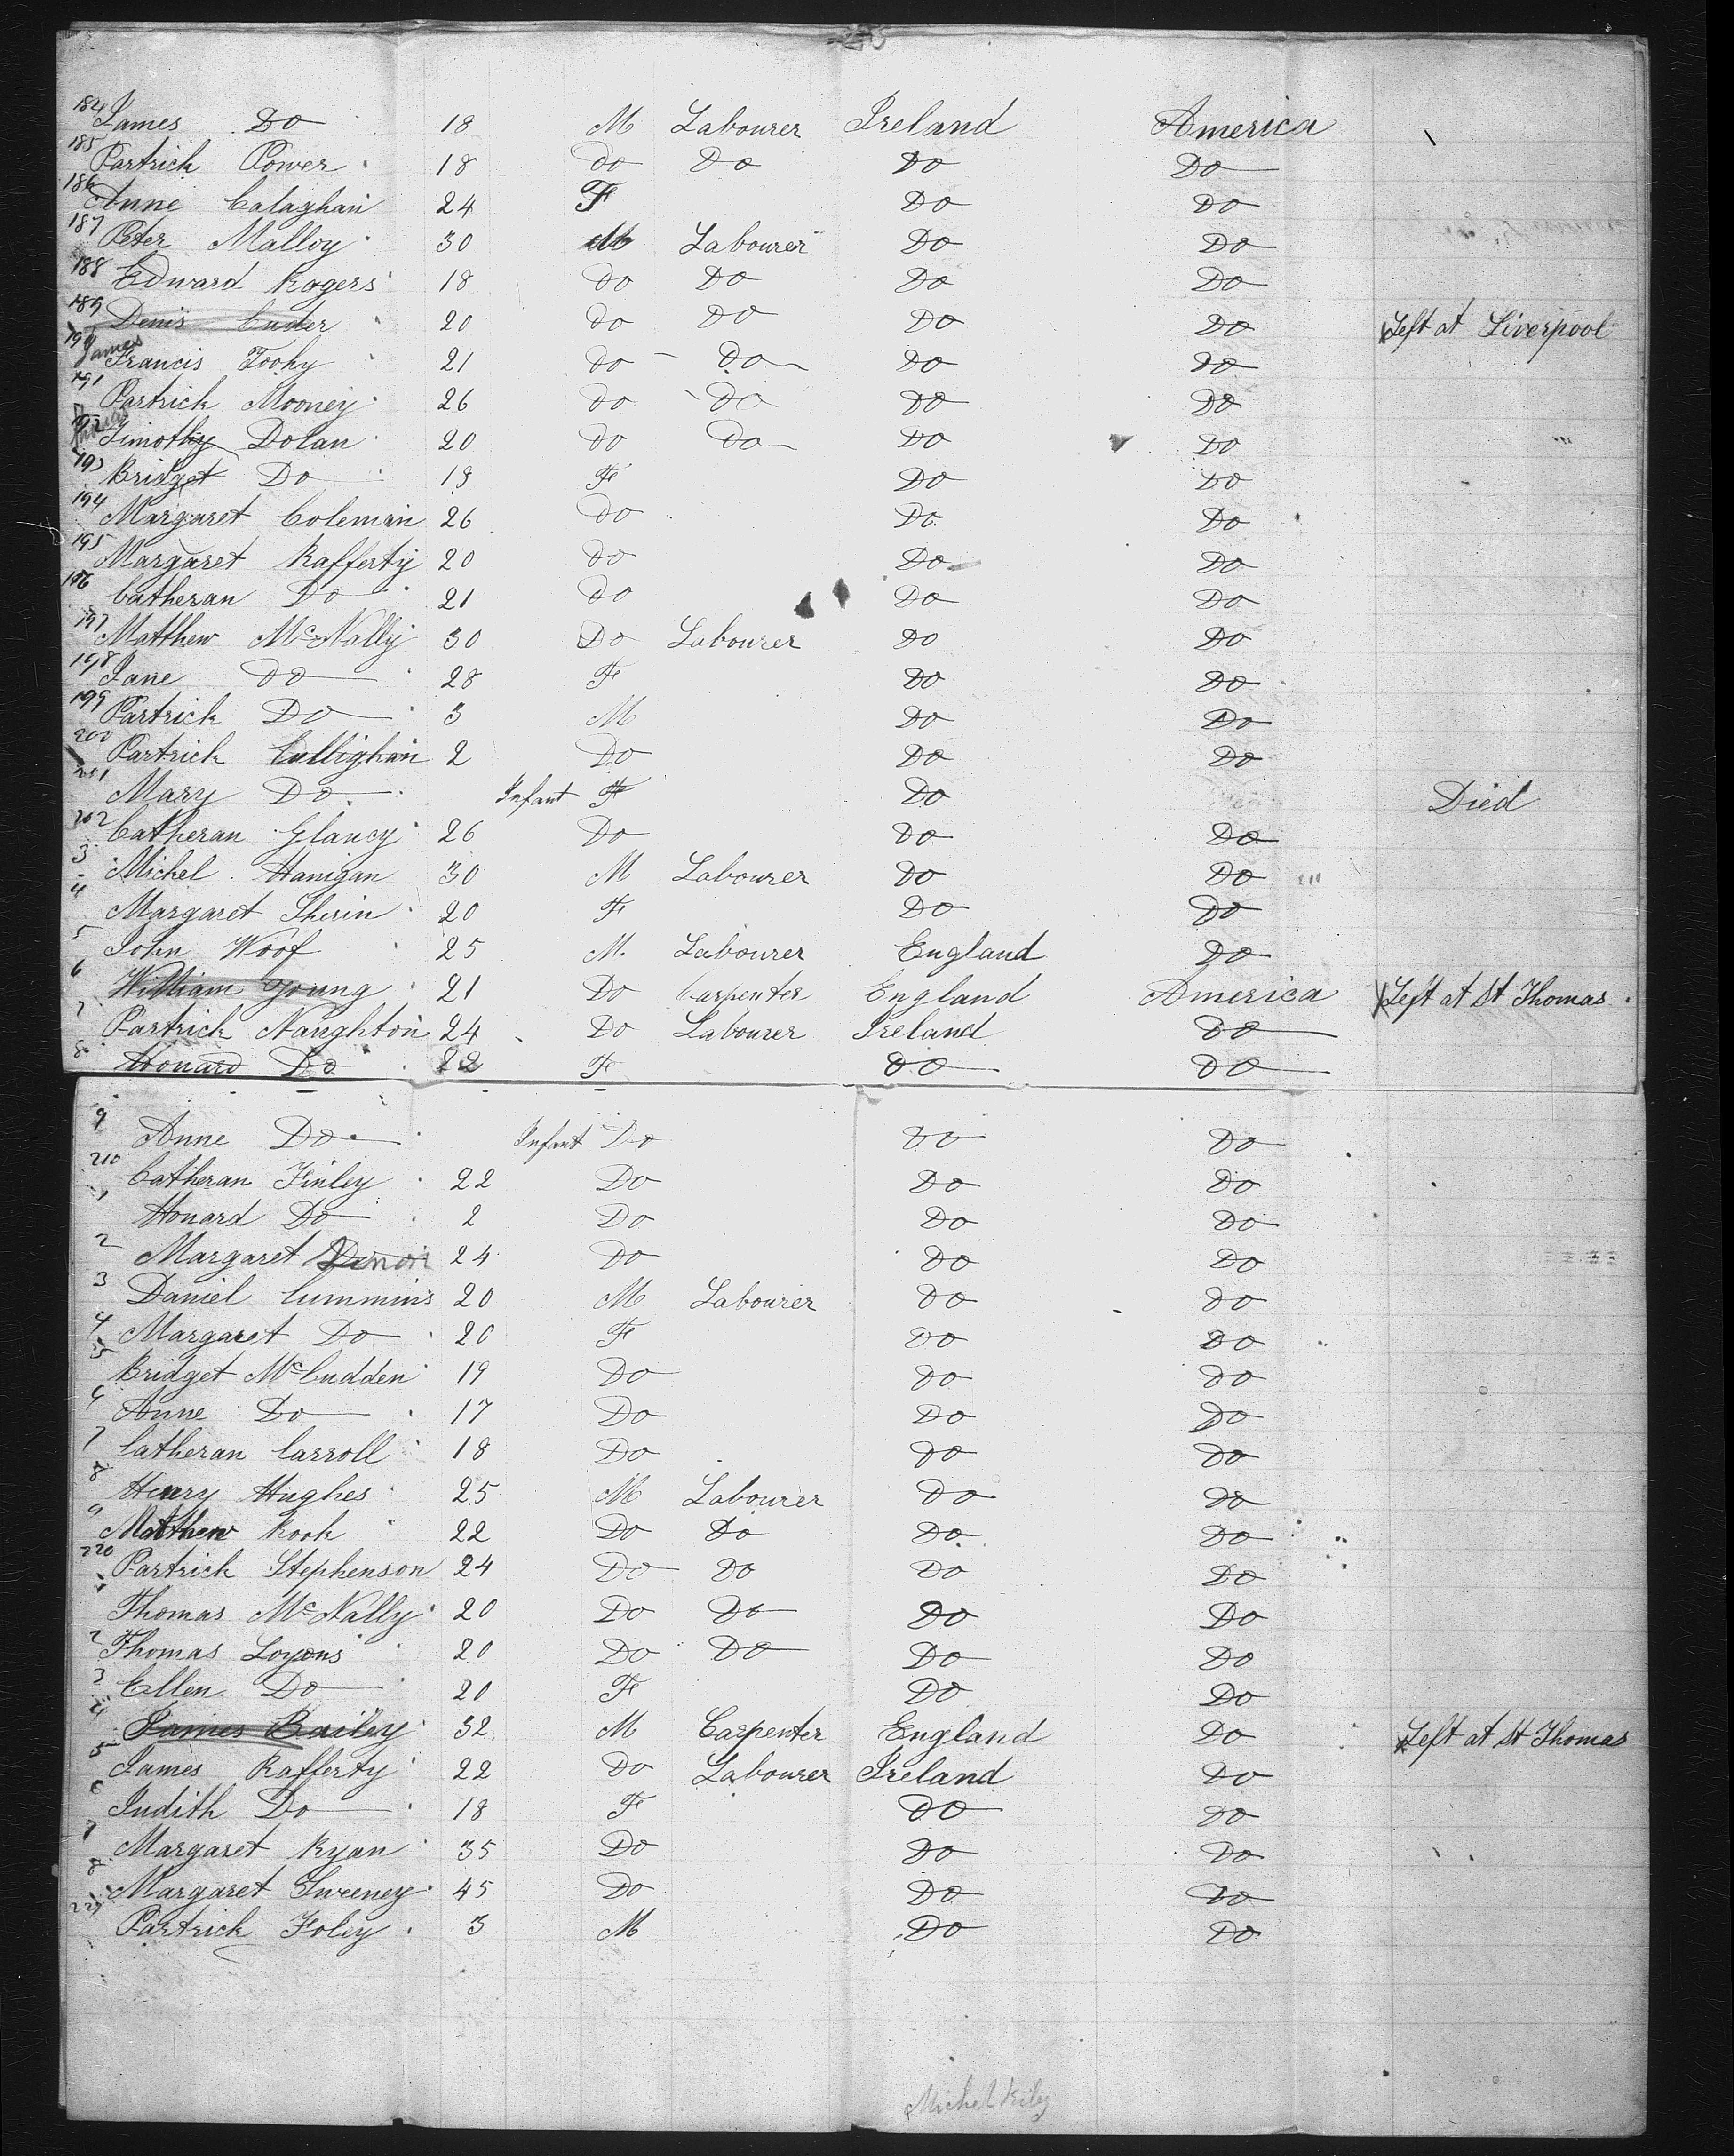 184 James Do 18 M Labourer Ireland America
185 Partrick Power 18 do Do Do Do
186 Anne Calaghan 24 F Do Do
187 Peter Malloy 30 M Labourer Do Do
188 Edward Rogers 18 do Do Do Do
189 Denis Cuder 20 do Do Do Do Left at Liverpool
James
190 Francis Toohy 21 do Do Do Do
191 Partrick Mooney 26 do Do Do Do
192 Timothy Dolan 20 do Do Do Do
193 Bridget Do 19 F Do Do
194 Margaret Coleman 26 do Do Do
195 Margaret Rafferty 20 do Do Do
196 Catheran Do 21 do Do Do
197 Matthew McNally 30 Do Labourer Do Do
198 Jane Do 28 F Do Do
199 Partrick Do 3 M Do Do
200 Partrick Cullighan 2 Do Do Do
201 Mary Do Infant F Do Died
202 Catheran Glancy 26 Do Do Do
3 Michel Hanigan 30 M Labourer Do Do
4 Margaret Sherin 20 F Do Do
5 John Woof 25 M Labourer England Do
6 William Young 21 Do Carpenter England America Left at St Thomas
7 Partrick Naughton 24 Do Labourer Ireland Do
8 Honard Do 22 F Do Do
9 Anne Do Infant Do Do Do
210 Catheran Finley 22 Do Do Do
1 Honard Do 2 Do Do Do
2 Margaret 24 Do Do Do
3 Daniel Cummins 20 M Labourer Do Do
4 Margaret Do 20 F Do Do
5 Bridget McCudden 19 Do Do Do
6 Anne Do 17 Do Do Do
7 Catheran Carroll 18 Do Do Do
8 Henry Hughes 25 M Labourer Do Do
9 Matthew Rook 22 Do Do Do Do
220 Partrick Stephenson 24 Do Do Do Do
1 Thomas McNally 20 Do Do Do Do
2 Thomas Loyons 20 Do Do Do Do
3 Ellen Do 20 F Do Do
4 James Bailey 32 M Carpenter England Do Left at St Thomas
5 James Rafferty 22 Do Labourer Ireland Do
6 Judith Do 18 F Do Do
7 Margaret Ryan 35 Do Do Do
8 Margaret Sweeney 45 Do Do Do
229 Partrick Foley 3 M Do Do
Michel Kiley